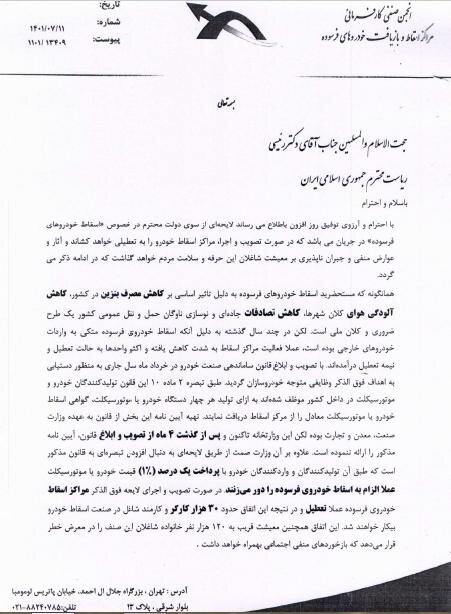 انجمن صنفی کارفرمائی
مراکز اسقاط و بازیافت خودروهای فرسوده
تاریخ:
شماره: ۱۴۰۱/۰۷/۱۱
پیوست: ۱۱۰۱/ ۱۳۴۰۹
بسمه تعالی
حجت الاسلام والمسلمین جناب آقای دکتر رئیسی
ریاست محترم جمهوری اسلامی ایران
باسلام و احترام
با احترام و آرزوی توفیق روز افزون باطلاع می رساند لایحه‌ای از سوی دولت محترم در خصوص «اسقاط خودروهای
فرسوده» در جریان می باشد که در صورت تصویب و اجرا، مراکز اسقاط خودرو را به تعطیلی خواهد کشاند و آثار و
عوارض منفی و جبران ناپذیری بر معیشت شاغلان این حرفه و سلامت مردم خواهد گذاشت که در ادامه ذکر می
گردد.
همانگونه که مستحضرید اسقاط خودروهای فرسوده به دلیل تاثیر اساسی بر کاهش مصرف بنزین در کشور، کاهش
آلودگی هوای کلان شهرها، کاهش تصادفات جاده‌ای و نوسازی ناوگان حمل و نقل عمومی کشور یک طرح
ضروری و کلان ملی است. لکن در چند سال گذشته به دلیل آنکه اسقاط خودروی فرسوده متکی به واردات
خودروهای خارجی بوده است، عملا فعالیت مراکز اسقاط به شدت کاهش یافته و اکثر واحدها به حالت تعطیل و
نیمه تعطیل درآمده‌اند. با تصویب و ابلاغ قانون ساماندهی صنعت خودرو در خرداد ماه سال جاری به منظور دستیابی
به اهداف فوق الذکر وظایفی متوجه خودروسازان گردید. طبق تبصره ۲ ماده ۱۰ این قانون تولیدکنندگان خودرو و
موتورسیکلت در داخل کشور موظف شده‌اند به ازای تولید هر چهار دستگاه خودرو یا موتورسیکلت، گواهی اسقاط
خودرو یا موتورسیکلت معادل را از مرکز اسقاط دریافت نمایند. تهیه آیین نامه این بخش از قانون به عهده وزارت
صنعت، معدن و تجارت بوده لکن این وزارتخانه تاکنون و پس از گذشت ۴ ماه از تصویب و ابلاغ قانون، آیین نامه
مذکور را ارائه ننموده است. علاوه بر آن وزارت صمت از طریق لایحه‌ای به دنبال افزودن تبصره‌ای به قانون مذکور
است که طبق آن تولیدکنندگان و واردکنندگان خودرو با پرداخت یک درصد (۱%) قیمت خودرو یا موتورسیکلت
عملا الزام به اسقاط خودروی فرسوده را دور می‌زنند. در صورت تصویب و اجرای لایحه فوق الذکر مراکز اسقاط
خودروی فرسوده عملا تعطیل و در نتیجه این اتفاق حدود ۳۰ هزار کارگر و کارمند شاغل در صنعت اسقاط خودرو
بیکار خواهند شد. این اتفاق همچنین معیشت قریب به ۱۲۰ هزار نفر خانواده شاغلان این صنف را در معرض خطر
قرار می‌دهد که بازخوردهای منفی اجتماعی بهمراه خواهد داشت .
آدرس : تهران ، بزرگراه جلال ال احمد، خیابان پاتریس لومومبا
بلوار شرقی ، پلاک ۱۳ تلفن:۸۸۲۴۰۷۸۵-۰۲۱